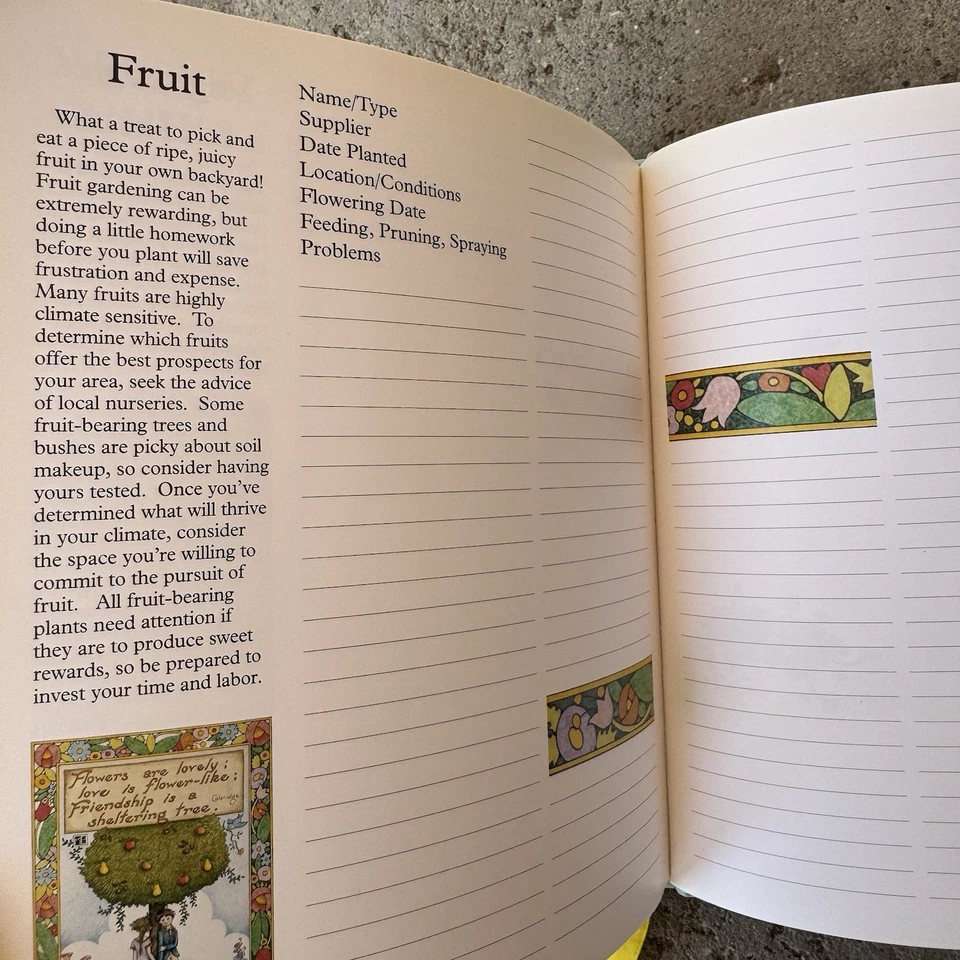 Fruit
What a treat to pick and
eat a piece of ripe, juicy
fruit in your own backyard!
Fruit gardening can be
extremely rewarding, but
doing a little homework
before you plant will save
frustration and expense.
Many fruits are highly
climate sensitive. To
determine which fruits
offer the best prospects for
your area, seek the advice
of local nurseries. Some
fruit-bearing trees and
bushes are picky about soil
makeup, so consider having
yours tested. Once you've
determined what will thrive
in your climate, consider
the space you're willing to
commit to the pursuit of
fruit. All fruit-bearing
plants need attention if
they are to produce sweet
rewards, so be prepared to
invest your time and labor.
Flowers are lovely;
love is flower-like;
Friendship is a
sheltering tree.
Coleridge
Name/Type
Supplier
Date Planted
Location/Conditions
Flowering Date
Feeding, Pruning, Spraying
Problems